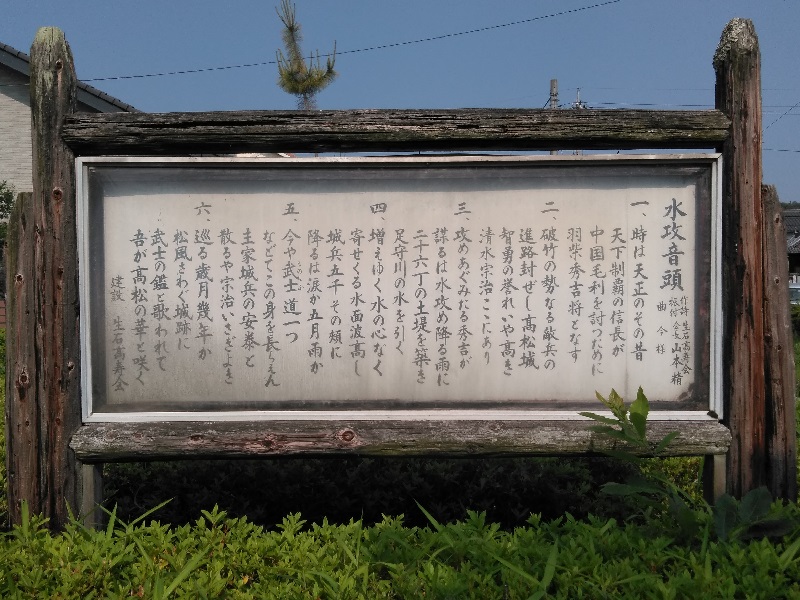 水攻音頭
作詩 生石高寿会
振付 会長 山本精
曲 今様
一、時は天正のその昔
天下制覇の信長が
中国毛利を討つために
羽柴秀吉将となす
二、破竹の勢なる敵兵の
進路封ぜし高松城
智勇の誉れいや高き
清水宗治こゝにあり
三、攻めあぐみたる秀吉が
謀るは水攻め降る雨に
二十六丁の土堤を築き
足守川の水を引く
四、増えゆく水の心なく
寄せくる水面波高し
城兵五千その頬に
降るは涙か五月雨か
五、今や武士道一つ
などてこの身を長らえん
主家城兵の安泰と
散るや宗治いさぎよき
六、巡る歳月幾年か
松風さわぐ城跡に
武士の鑑と歌われて
吾が高松の華と咲く
建設 生石高寿会